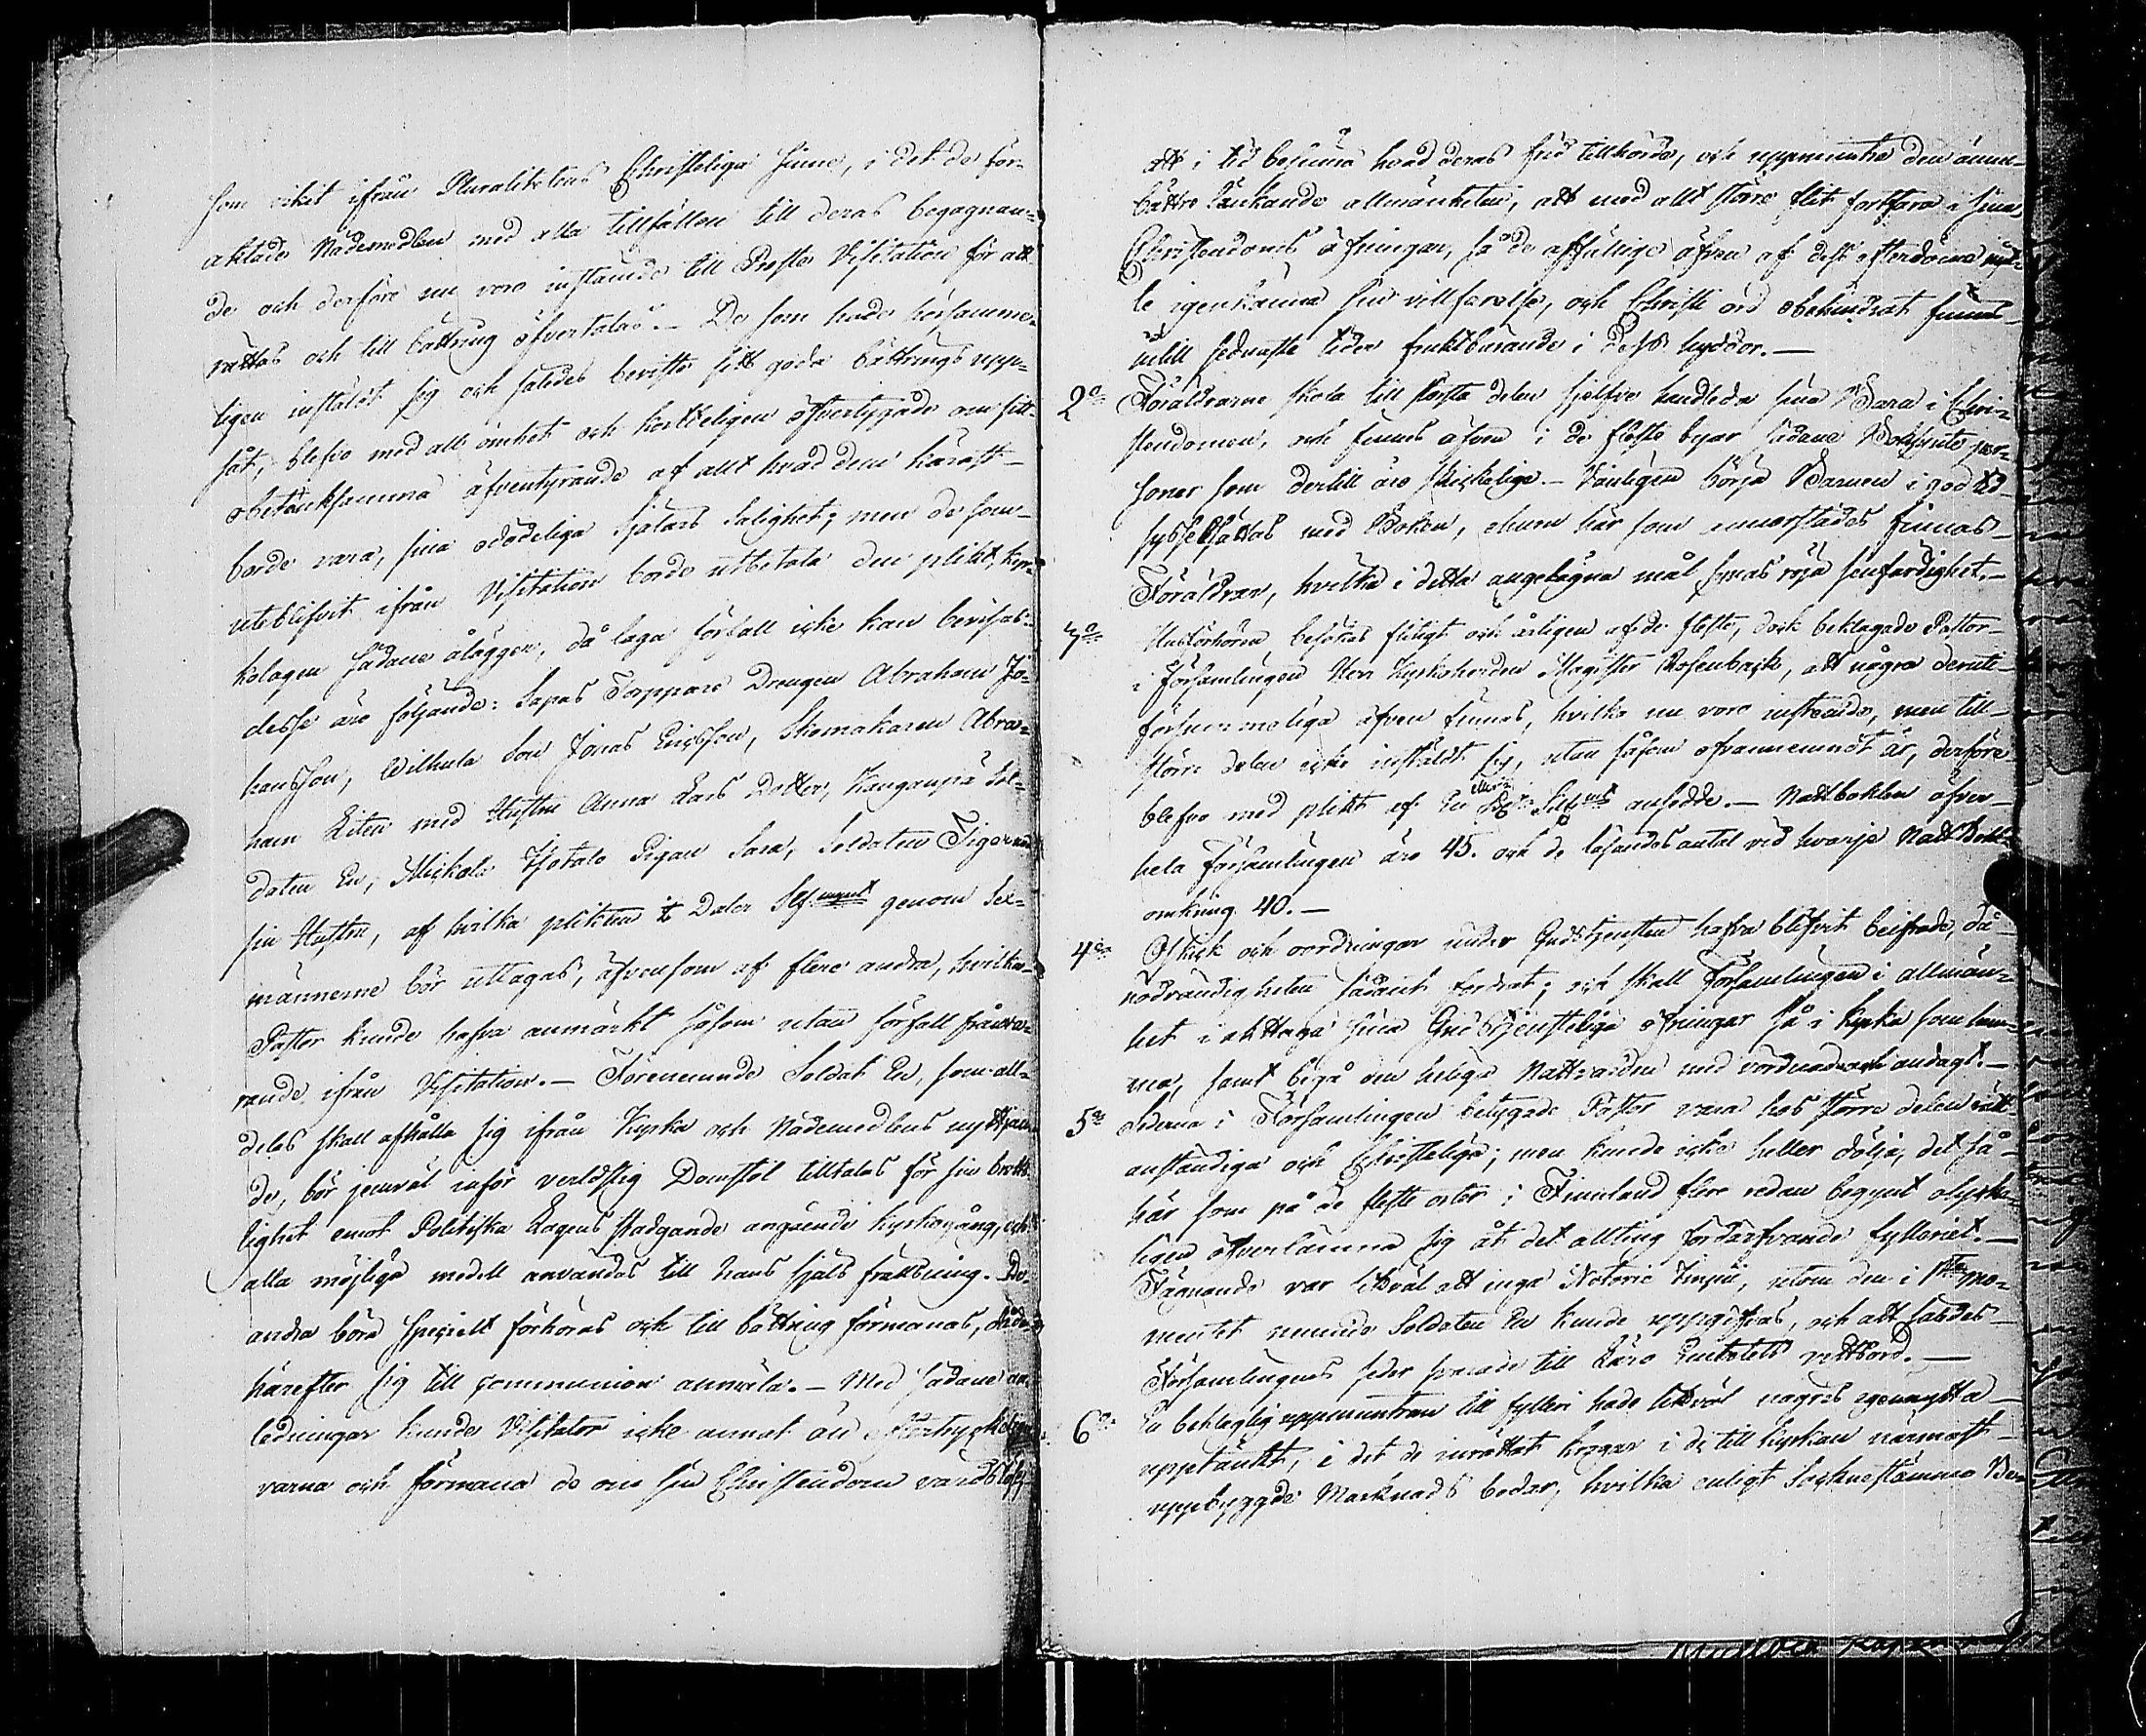 som vikit ifrån Pluralitetens Christeliga sinne, i det de för-
aktade Nådemedlen med alla tillfällen till deras begagnan-
de och derföre nu voro instämde till Prosten Visitation för att
rättas och till bättring öfvertalas. – De som hade hörsamme-
ligen instäldt sig och således beviste sitt goda bättrings upp-
såt, blefvo med all ömhet och kortteligen öfvertygade om sitt
obetänksamma äfventyrande af allt hvad dem kärast
borde vara, sina odödeliga själars salighet; men de som
uteblifvit ifrån Visitation borde utbetala den plikt, kyr-
kolagen sådane ålägger, då laga förfall icke kan bevisas.
desse äro följande: Sapas Torppare Drengen Abraham Jo-
hansson, Wilhula Son Jonas Ericsson, Skomakaren Abra-
ham Liten med Hustru Anna Lars Dotter, Kanganpää Sol-
daten En, Mickola Hotalo Pigan Sara, Soldaten Tiger med
sin Hustru, af hvilka plikten Daler Slfmynt genom Sex-
männerne bör uttagas, äfvensom af flere andra, hvilka
Pastor kunde hafva anmärkt såsom utan förfall frånva-
rande ifrån Visitation. – Förenemnde Soldat En, som all-
deles skall afhålla sig ifrån Kyrka och Nådemedlens nyttjan-
de, bör jemväl inför verldslig Domstol tilltalas för sin brotts-
lighet emot Politiska Lagens stadgande angående kyrkogång, och
alla möjliga medell användas till hans själs frälsning. De
andra böra speciellt förhöras och till bättring förmanas, då de
härefter sig till communion anmäla. – Med sådane an-
ledningar kunde Visitator icke annat än eftertryckeligen
varna och förmana de om sin Christendom vårdslösa
att i tid besinna hvad deras frid tillhörde, och uppmuntra den ännu
bättre tänkande allmänheten, att med allt större flit fortfara i sina
Christendoms öfningar, så de affällige äfven af dess efterdöme måt-
te igenkänna sin villfarelse, och Christi ord obehindrat finnas
intill sednaste tider fruktbärande i dess hyddor. –
2o Föräldrarne skola till största delen sjelfve handleda sina Barn i Chri-
stendomen, och finnes äfven i de fleste byar sådane Bokkunte per-
soner som dertill äro skickelige. – Vanligen börja Barnen i god tid
sysselsättas med Boken, ehuru här som annorstädes finnas
Föräldrar, hvilka i detta angelägna mål synas röja senfärdighet. –
3o Husförhören besökas flitigt och årligen af de fleste, dock beklagade Pastor
i Församlingen Herr Kyrkoherden Magister Rosenback, att några deruti
försummelige äfven finnas, hvilka nu voro instämde, men till
större delen icke instäldt sig, utan såsom ofvannemndt är, derföre
blefvo med plikt af En Dr Slfmt ansedde. – Nattboklen öfver
hela Församlingen äro 45. och de läsandes antal vid hvarje Natt Bohl
omkring 40. –
4o Oskick och oordningar under Gudstjensten hafva blifvit beifrade, då
nödvändigheten sådant fordrat; och skall Församlingen i allmän-
het iakttaga sina Gudstjensteliga öfningar så i kyrka som hem-
ma, samt begå den heliga Nattvarden med vördnad och andagt. –
5o Sederna i Församlingen betygade Pastor vara hos större delen rätt
anständiga och Christeliga; men kunde icke heller dölja, det så
här som på de fleste orter i Finnland flere redan begynt olycke-
ligen öfverlämna sig åt det allting fördärfvande fylleriet. –
Fägnande var likväl att inga Notorie Impii, utom den i 1sta mo-
mentet nemnde Soldaten En kunde uppgifvas, och att således
Församlingens seder svarade till Läro Embetets vittsord. –
6o En beklaglig uppmuntran till fylleri hade likväl någras egennytta
upptänkt, i det de inrättat krogar i de till kyrkan närmast
uppbyggde Marknads bodar, hvilka enligt Sockenstämmo Be-